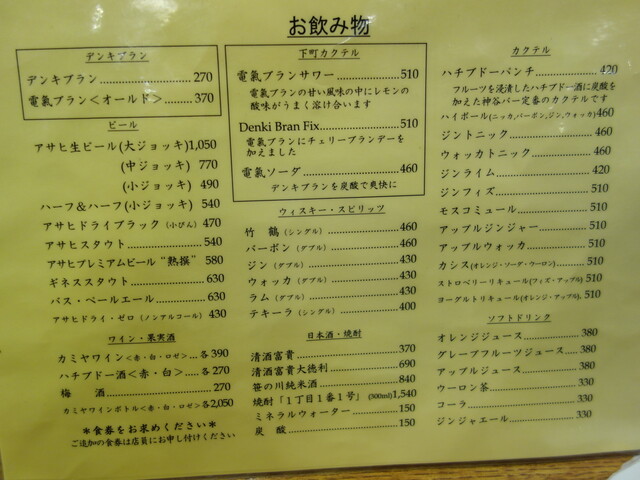 お飲み物
デンキブラン
デンキブラン 270
電氣ブラン<オールド> 370
ビール
アサヒ生ビール(大ジョッキ) 1,050
(中ジョッキ) 770
(小ジョッキ) 490
ハーフ&ハーフ(小ジョッキ) 540
アサヒドライブラック(小びん) 470
アサヒスタウト 540
アサヒプレミアムビール"熟撰" 580
ギネススタウト 630
バス・ペールエール 630
アサヒドライ・ゼロ(ノンアルコール) 430
ワイン・果実酒
カミヤワイン<赤・白・ロゼ> 各390
ハチブドー酒<赤・白> 各270
梅酒 270
カミヤワインボトル<赤・白・ロゼ> 各2,050
*食券をお求めください*
ご追加の食券は店員にお申し付けください
下町カクテル
電氣ブランサワー 510
電氣ブランの甘い風味の中にレモンの
酸味がうまく溶け合います
Denki Bran Fix 510
電氣ブランにチェリーブランデーを
加えました
電氣ソーダ 460
デンキブランを炭酸で爽快に
ウィスキー・スピリッツ
竹鶴(シングル) 460
バーボン(ダブル) 460
ジン(ダブル) 430
ウォッカ(ダブル) 430
ラム(ダブル) 430
テキーラ(シングル) 400
日本酒・焼酎
清酒富貴 370
清酒富貴大徳利 690
笹の川純米酒 840
焼酎「1丁目1番1号」(300ml) 1,540
ミネラルウォーター 150
炭酸 150
カクテル
ハチブドーパンチ 420
フルーツを浸漬したハチブドー酒に炭酸を
加えた神谷バー定番のカクテルです
ハイボール(ニッカ,バーボン,ジン,ウォッカ) 460
ジントニック 460
ウォッカトニック 460
ジンライム 420
ジンフィズ 510
モスコミュール 510
アップルジンジャー 510
アップルウォッカ 510
カシス(オレンジ・ソーダ・ウーロン) 510
ストロベリーリキュール(フィズ・アップル) 510
ヨーグルトリキュール(オレンジ・アップル) 510
ソフトドリンク
オレンジジュース 380
グレープフルーツジュース 380
アップルジュース 380
ウーロン茶 330
コーラ 330
ジンジャエール 330